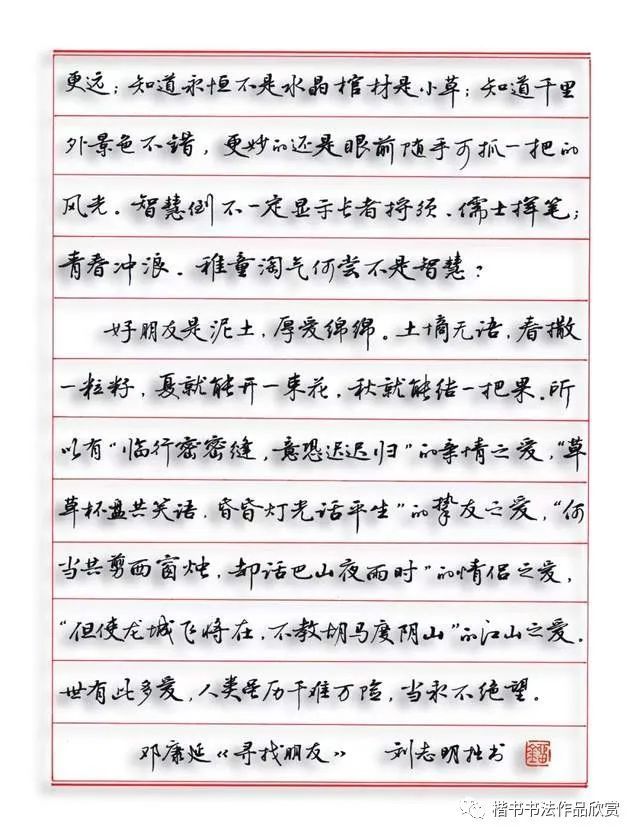 更远；知道永恒不是水晶棺材是小草；知道千里
外景色不错，更妙的还是眼前随手可抓一把的
风光。智慧倒不一定显于长者捋须、儒士挥笔；
青春冲浪、稚童淘气何尝不是智慧？
好朋友是泥土，厚爱绵绵。土壤无语，春撒
一粒籽，夏就能开一束花，秋就能结一把果。所
以有“临行密密缝，意恐迟迟归”的亲情之爱，“草
草杯盘共笑语，昏昏灯光话平生”的挚友之爱，“何
当共剪西窗烛，却话巴山夜雨时”的情侣之爱，
“但使龙城飞将在，不教胡马度阴山”的江山之爱。
世有此多爱，人类虽历千难万险，当永不绝望。
邓康延《寻找朋友》 刘志明拙书
楷书书法作品欣赏